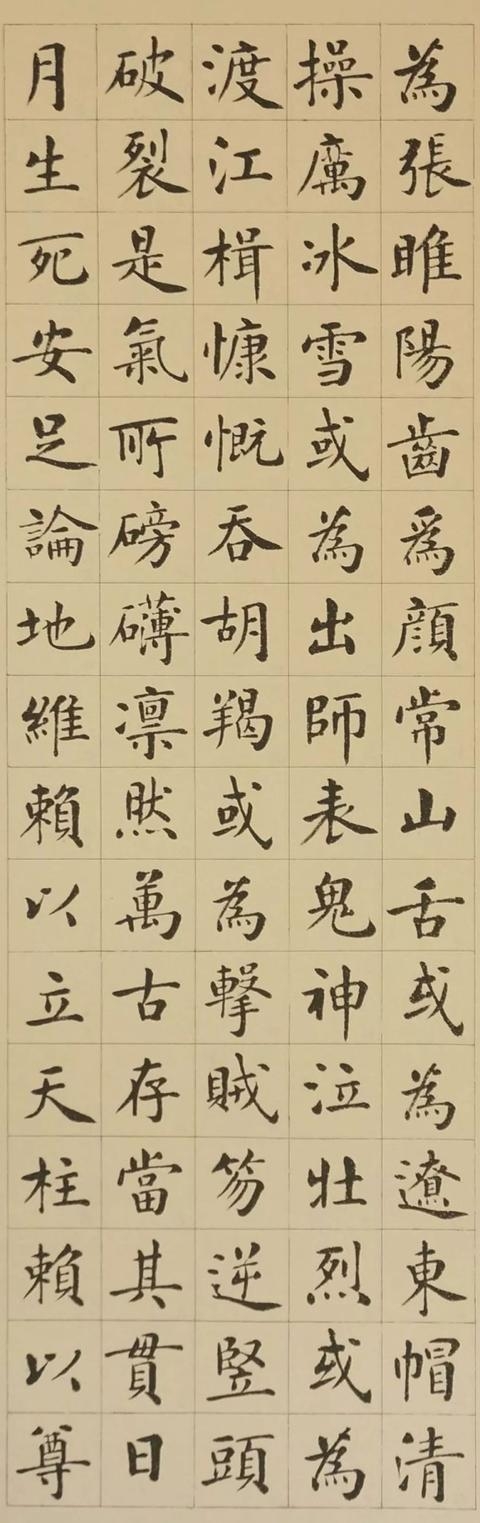 為張睢陽齒爲顔常山舌或為遼東帽清
操厲冰雪或為出師表鬼神泣壯烈或為
渡江楫慷慨吞胡羯或為擊賊笏逆竪頭
破裂是氣所磅礴凛然萬古存當其貫日
月生死安足論地維賴以立天柱賴以尊